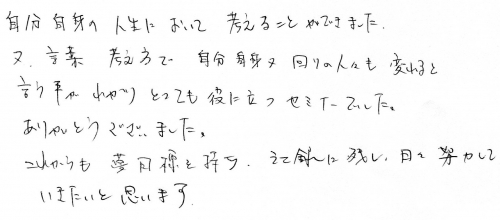 自分自身の人生において考えることができました.
又、言葉 考え方で 自分自身又回りの人々も変れると
言う事がわかりとっても役に立つセミナーでした。
ありがとうございました。
これからも 夢目標を持ち、 に残し、日々努力して
いきたいと思います.